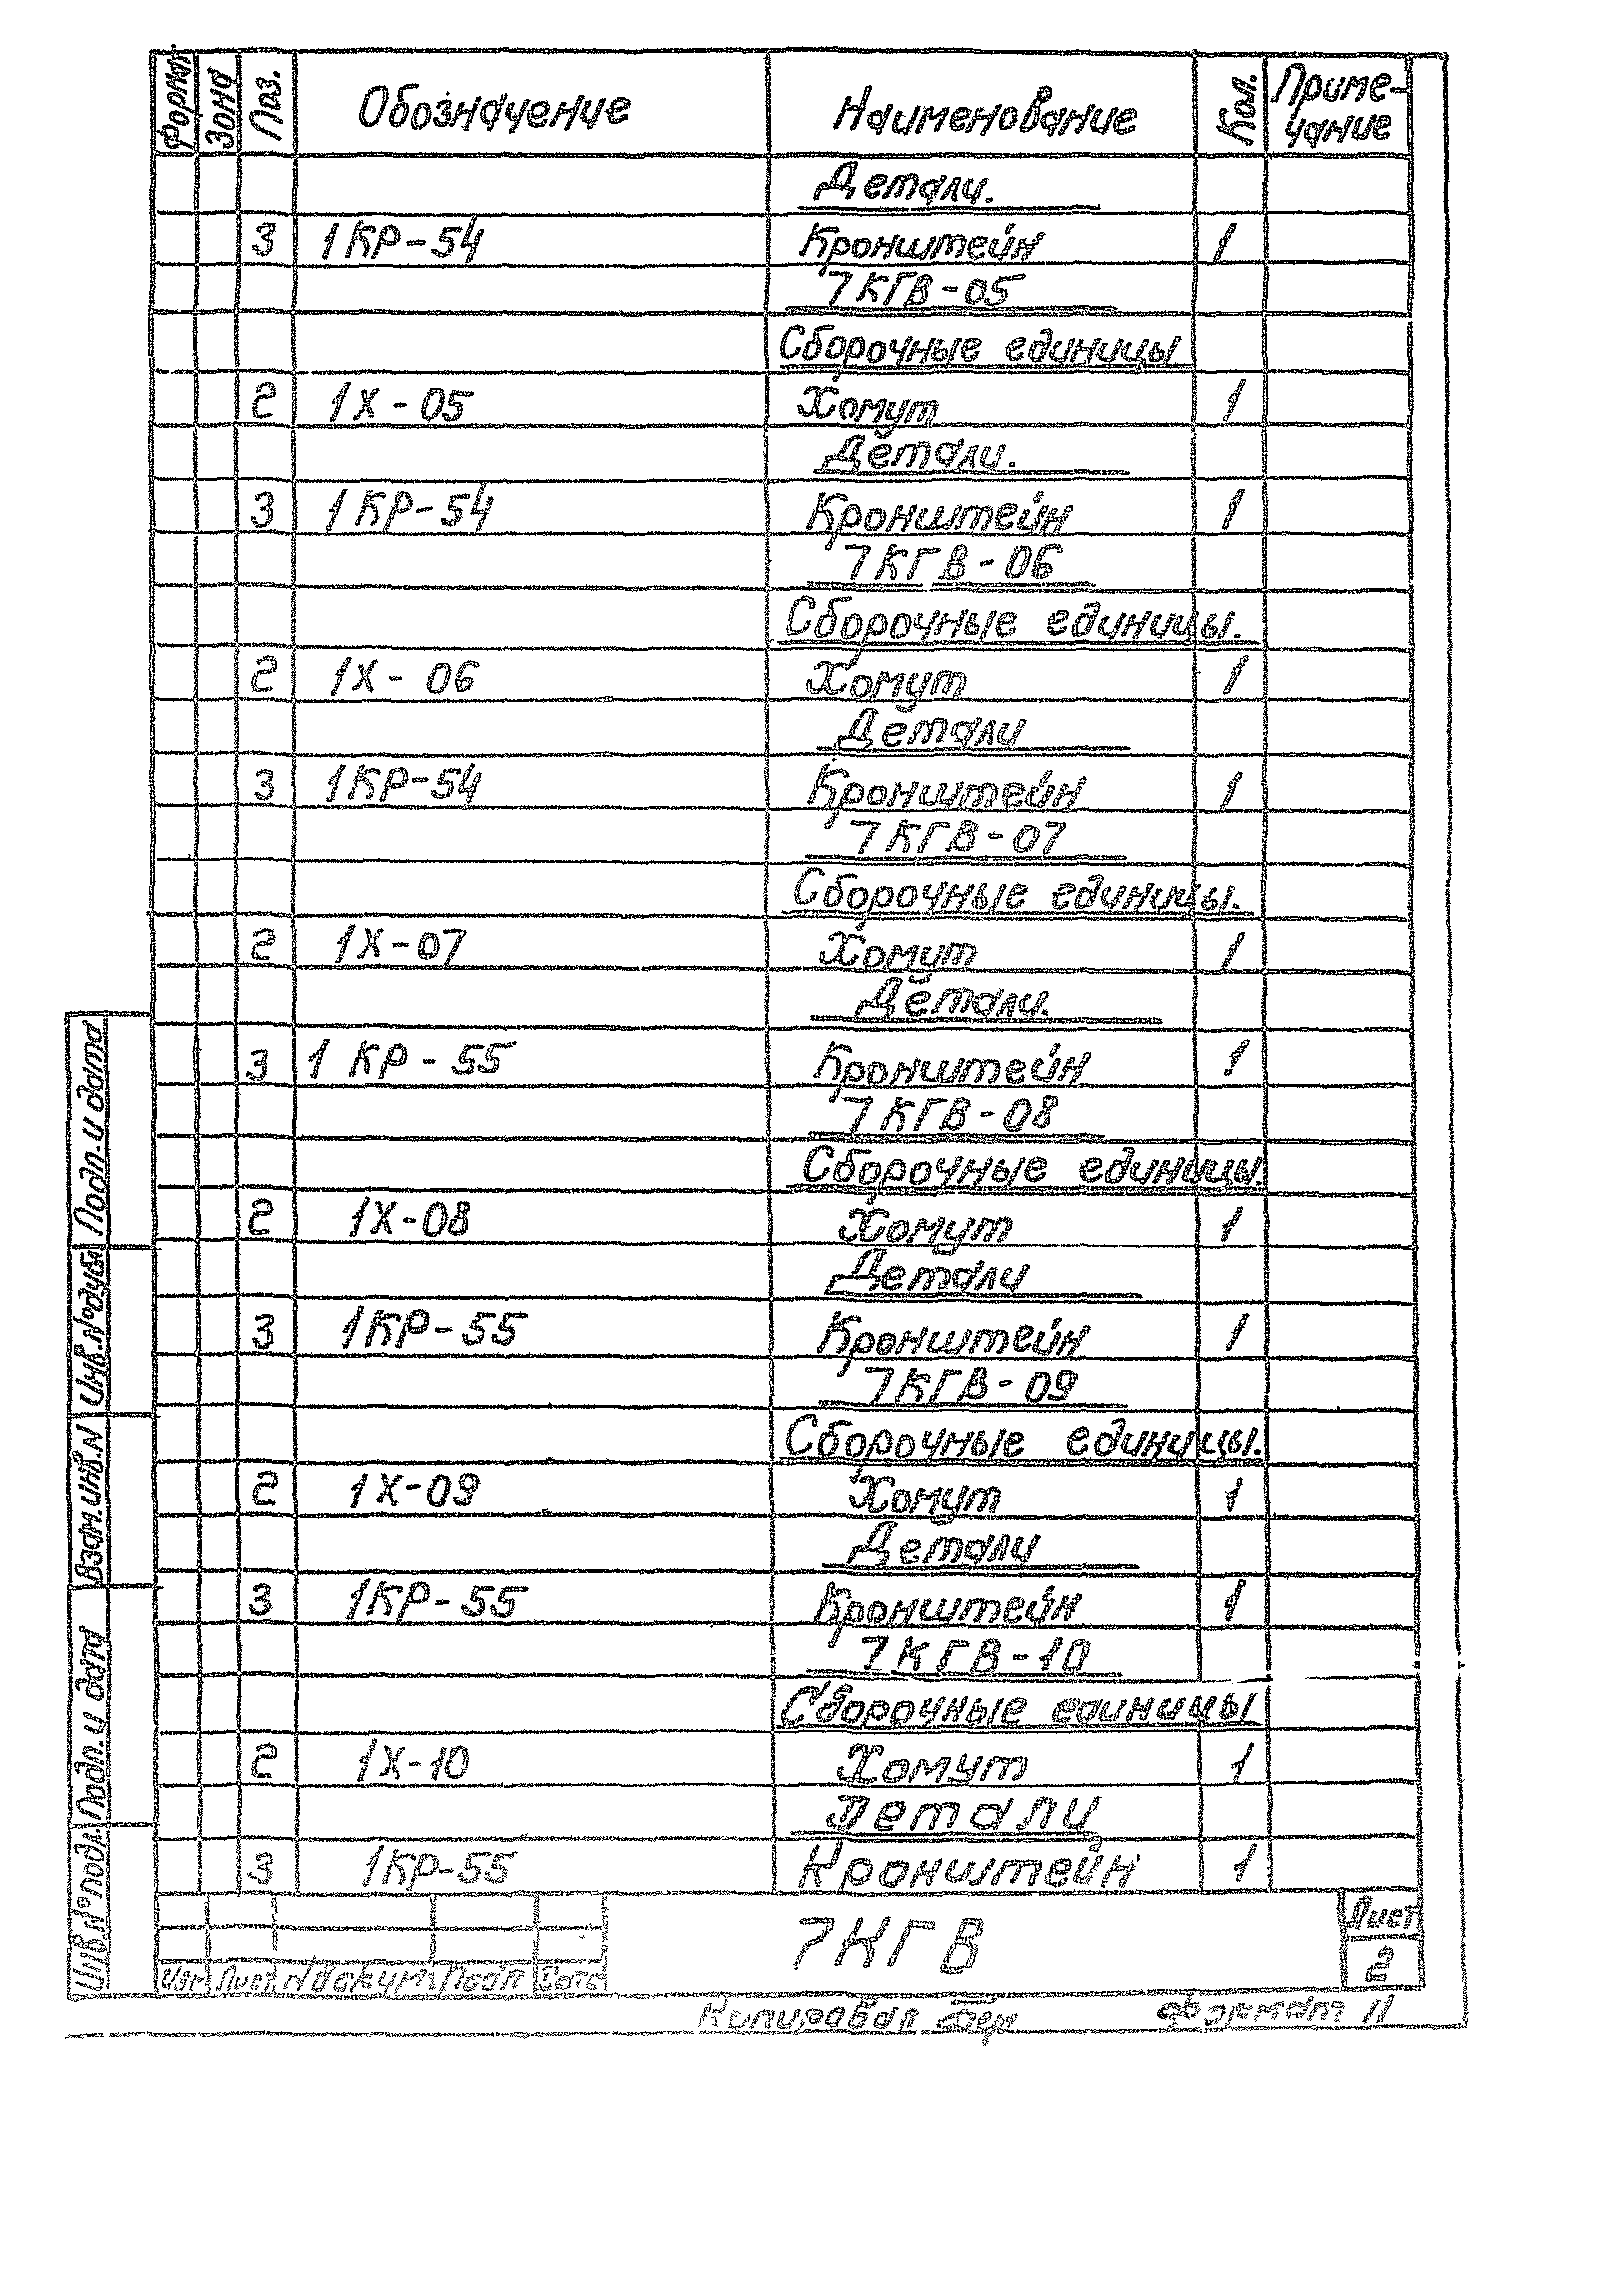 Формат Зона Поз. Обозначение Наименование Кол. Приме-
чание
Детали.
3 1КР-54 Кронштейн 1
7КГВ-05
Сборочные единицы
2 1Х-05 Хомут 1
Детали.
3 1КР-54 Кронштейн 1
7КГВ-06
Сборочные единицы.
2 1Х-06 Хомут 1
Детали
3 1КР-54 Кронштейн 1
7КГВ-07
Сборочные единицы.
2 1Х-07 Хомут 1
Детали.
3 1КР-55 Кронштейн 1
7КГВ-08
Сборочные единицы.
2 1Х-08 Хомут 1
Детали
3 1КР-55 Кронштейн 1
7КГВ-09
Сборочные единицы.
2 1Х-09 Хомут 1
Детали
3 1КР-55 Кронштейн 1
7КГВ-10
Сборочные единицы
2 1Х-10 Хомут 1
Детали
3 1КР-55 Кронштейн 1
Подп. и дата
Инв.№дубл
Взам.инв.N
Подп. и дата
Инв.№подл.
7КГВ
Лист
2
Изм Лист №докум Подп Дата
Копировал Формат 11